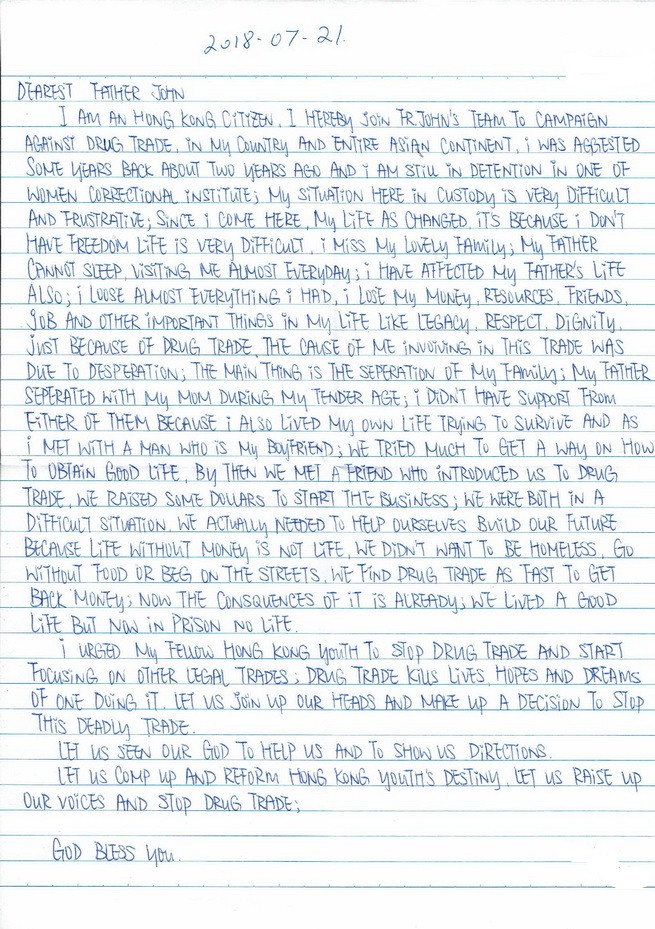 2018-07-21.
DEAREST FATHER JOHN
I AM AN HONG KONG CITIZEN, I HEREBY JOIN FR.JOHN'S TEAM TO CAMPAIGN
AGAINST DRUG TRADE, IN MY COUNTRY AND ENTIRE ASIAN CONTINENT, I WAS AGGESTED
SOME YEARS BACK ABOUT TWO YEARS AGO AND I AM STILL IN DETENTION IN ONE OF
WOMEN CORRECTIONAL INSTITUTE; MY SITUATION HERE IN CUSTODY IS VERY DIFFICULT
AND FRUSTRATIVE; SINCE I COME HERE, MY LIFE AS CHANGED, IT'S BECAUSE I DON'T
HAVE FREEDOM LIFE IS VERY DIFFICULT, I MISS MY LOVELY FAMILY; MY FATHER
CANNOT SLEEP, VISITING ME ALMOST EVERYDAY; I HAVE AFFECTED MY FATHER'S LIFE
ALSO; I LOOSE ALMOST EVERYTHING I HAD, I LOSE MY MONEY, RESOURCES, FRIENDS,
JOB AND OTHER IMPORTANT THINGS IN MY LIFE LIKE LEGACY, RESPECT, DIGNITY,
JUST BECAUSE OF DRUG TRADE, THE CAUSE OF ME INVOIVING IN THIS TRADE WAS
DUE TO DESPERATION; THE MAIN THING IS THE SEPERATION OF MY FAMILY; MY FATHER
SEPERATED WITH MY MOM DURING MY TENDER AGE; I DIDN'T HAVE SUPPORT FROM
EITHER OF THEM BECAUSE I ALSO LIVED MY OWN LIFE TRYING TO SURVIVE AND AS
I MET WITH A MAN WHO IS MY BOYFRIEND; WE TRIED MUCH TO GET A WAY ON HOW
TO OBTAIN GOOD LIFE, BY THEN WE MET A FRIEND WHO INTRODUCED US TO DRUG
TRADE, WE RAISED SOME DOLLARS TO START THE BUSINESS; WE WERE BOTH IN A
DIFFICULT SITUATION, WE ACTUALLY NEEDED TO HELP OURSELVES BUILD OUR FUTURE
BECAUSE LIFE WITHOUT MONEY IS NOT LIFE, WE DIDN'T WANT TO BE HOMELESS, GO
WITHOUT FOOD OR BEG ON THE STREETS, WE FIND DRUG TRADE AS FAST TO GET
BACK MONEY; NOW THE CONSQUENCES OF IT IS ALREADY; WE LIVED A GOOD
LIFE BUT NOW IN PRISON NO LIFE.
I URGED MY FELLOW HONG KONG YOUTH TO STOP DRUG TRADE AND START
FOCUSING ON OTHER LEGAL TRADES; DRUG TRADE KILLS LIVES, HOPES AND DREAMS
OF ONE DOING IT. LET US JOIN UP OUR HEADS AND MAKE UP A DECISION TO STOP
THIS DEADLY TRADE.
LET US SEEN OUR GOD TO HELP US AND TO SHOW US DIRECTIONS.
LET US COMP UP AND REFORM HONG KONG YOUTH'S DESTINY, LET US RAISE UP
OUR VOICES AND STOP DRUG TRADE;
GOD BLESS YOU.